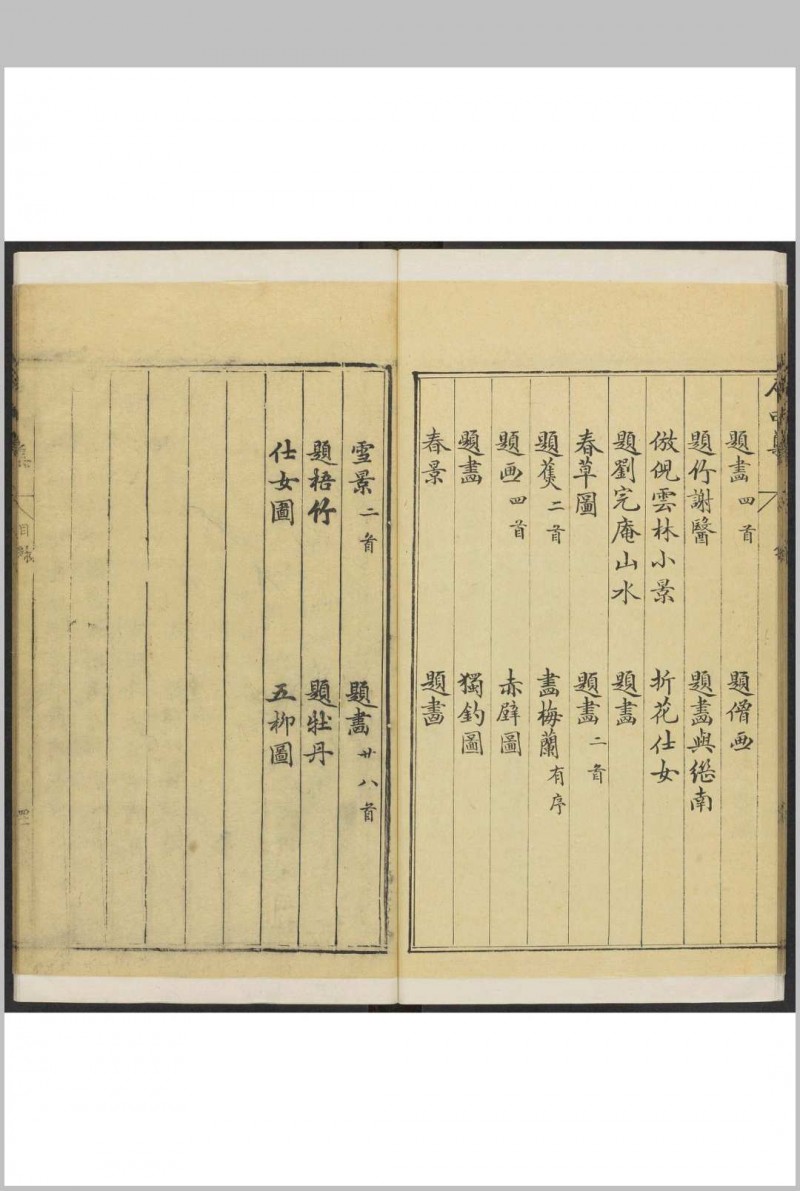 題畵四首 題僧画
題竹謝醫 題畵與繼南
倣倪雲林小景 折花仕女
題劉完庵山水 題畵
春草圖 題畵二首
題蕉二首 畵梅蘭有序
題画四首 赤壁圖
題畵 獨釣圖
春景 題畵
雪景二首 題畵廿八首
題梧竹 題牡丹
仕女圖 五柳圖
集
目錄
四